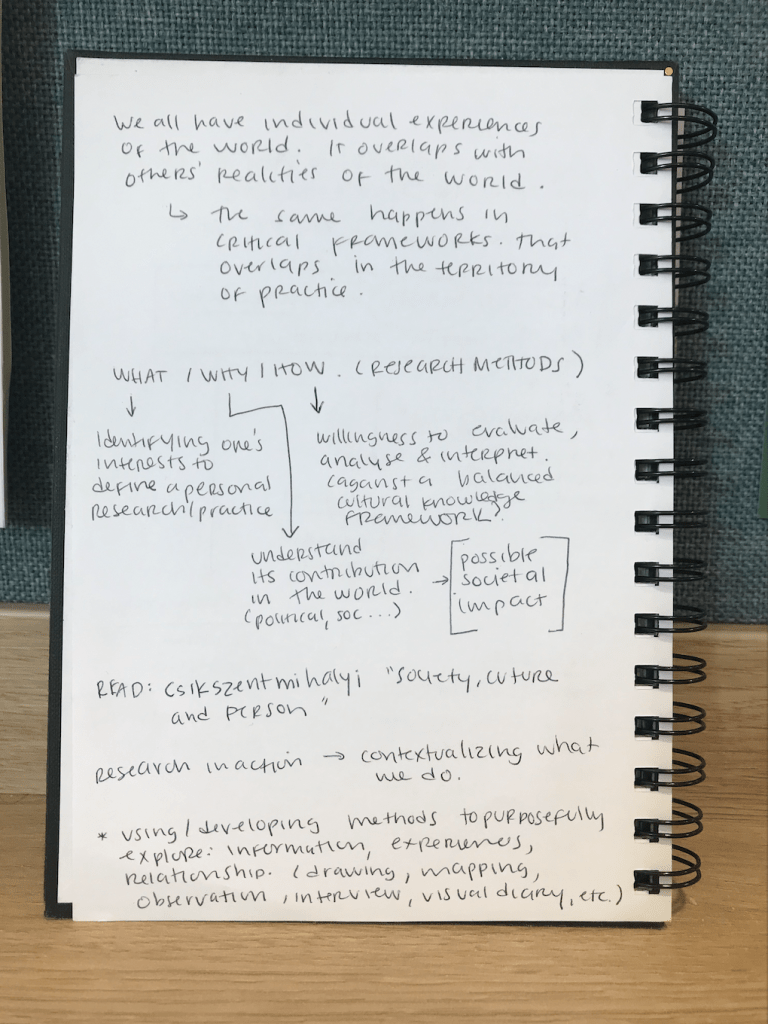 We all have individual experiences
of the world. It overlaps with
others' realities of the world.
↳ the same happens in
critical frameworks. that
overlaps in the territory
of practice.
WHAT / WHY / HOW. (RESEARCH METHODS)
Identifying one's
interests to
define a personal
research/practice
willingness to evaluate,
analyse & interpret.
(against a balanced
cultural knowledge
framework).
understand
its contribution
in the world.
(political, soc...)
→ [possible
societal
impact]
READ: Csikszentmihalyi "Society, cuture
and person"
research in action → contextualizing what
we do.
* using/developing methods to purposefully
explore: information, experiences,
relationship. (drawing, mapping,
observation, interview, visual diary, etc.)